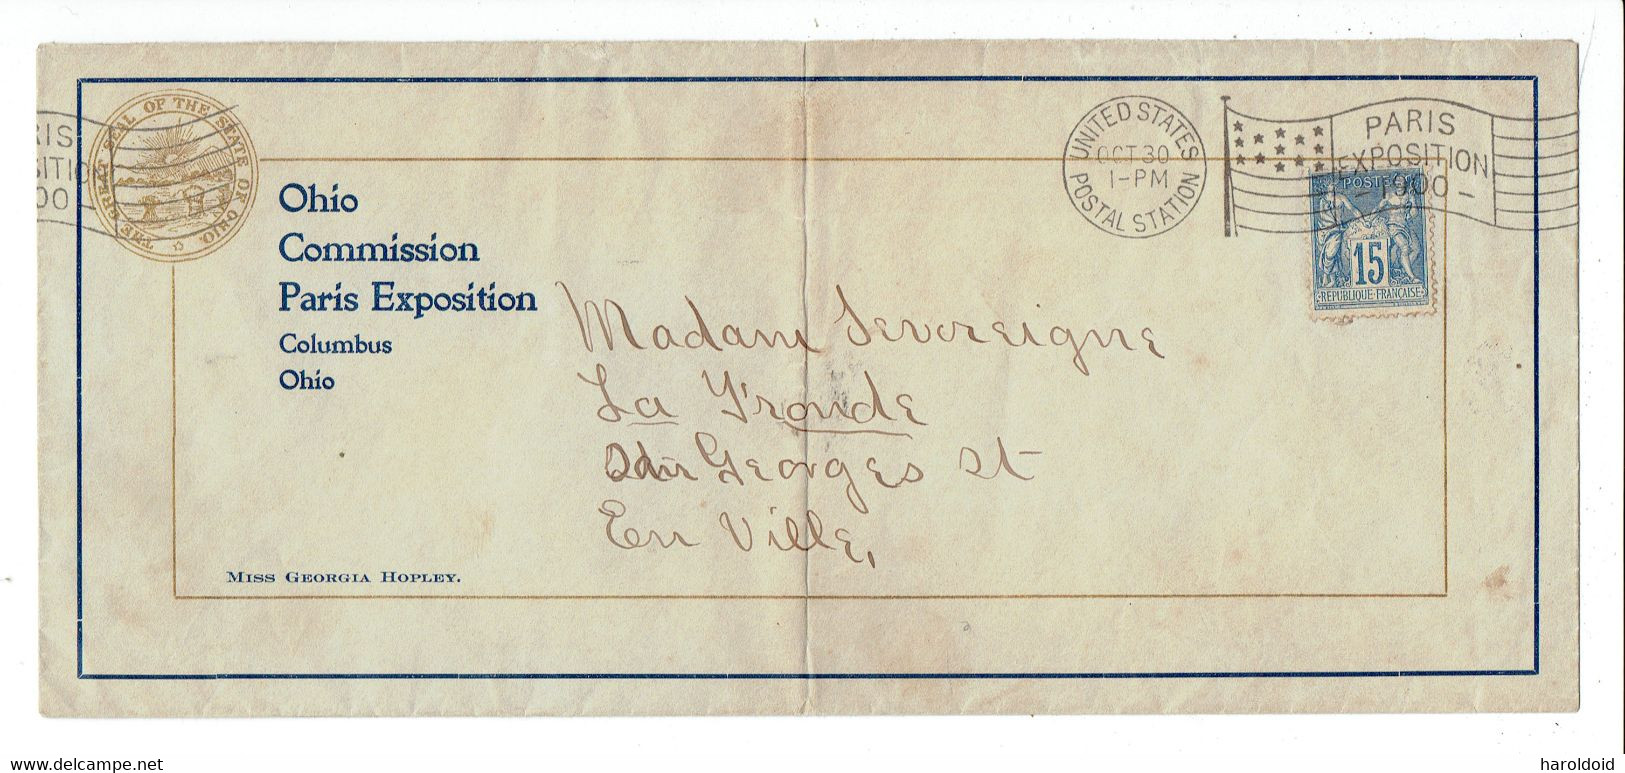 THE GREAT SEAL OF THE STATE OF OHIO.
RIS
SITION
00
UNITED STATES
OCT 30
1-PM
POSTAL STATION
PARIS
EXPOSITION
1900
POSTE
15
REPUBLIQUE FRANÇAISE
Ohio
Commission
Paris Exposition
Columbus
Ohio
Madam Severeigne
La Fronde
Georges St
En Ville,
MISS GEORGIA HOPLEY.
www.delcampe.net
haroldoid